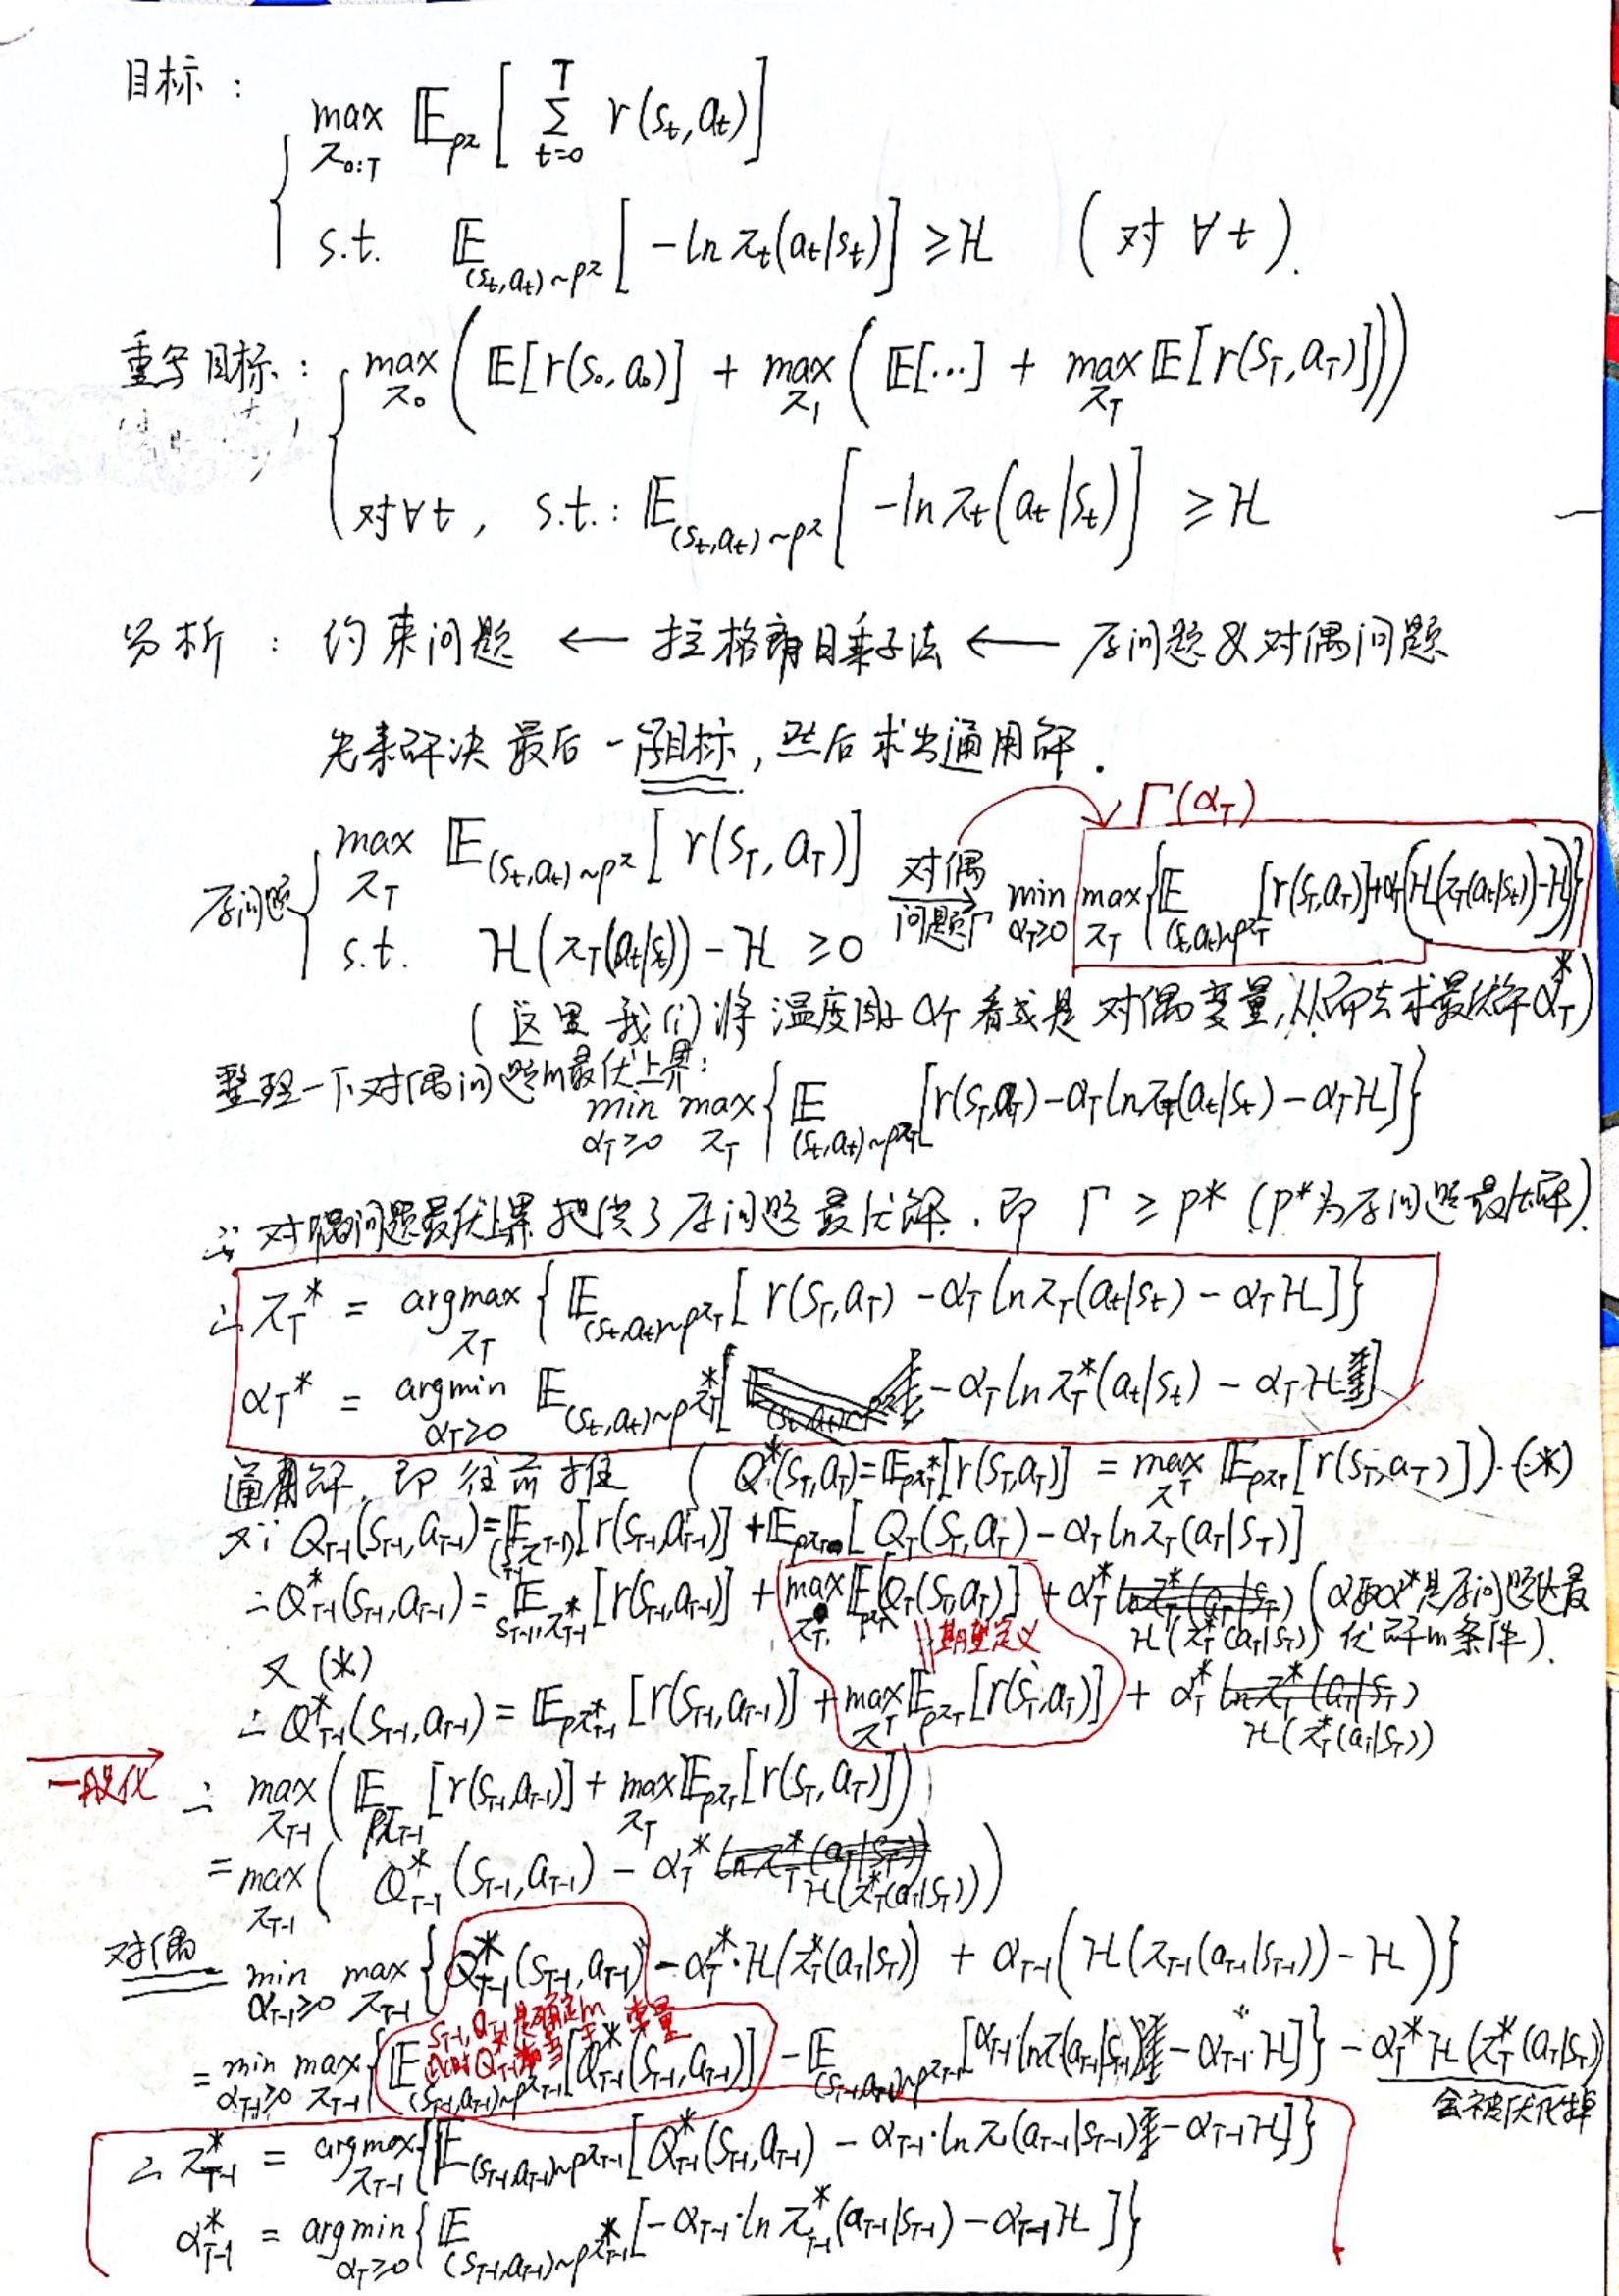 目标：
max_{π_{0:T}} 𝔼_{ρπ} [ Σ_{t=0}^{T} r(s_t, a_t) ]
s.t. 𝔼_{(s_t,a_t)~ρπ} [ -ln π_t(a_t|s_t) ] ≥ H （对 ∀t）.
重写目标：max_{π_0} ( 𝔼[r(s_0,a_0)] + max_{π_1} ( 𝔼[...] + max_{π_T} 𝔼[r(s_T,a_T)] ) )
对∀t, s.t.: 𝔼_{(s_t,a_t)~ρπ} [ -ln π_t(a_t|s_t) ] ≥ H
分析：约束问题 ← 拉格朗日乘子法 ← 原问题&对偶问题
先来解决最后一项目标，然后求出通用解.
Γ(α_T)
原问题 max_{π_T} 𝔼_{(s_t,a_t)~ρπ} [r(s_T,a_T)] 对偶问题Γ min_{α_T≥0} max_{π_T} { 𝔼_{(s_t,a_t)~ρπ_T} [r(s_T,a_T)] + α_T (H(π_T(a_t|s_t)) - H) }
s.t. H(π_T(a_t|s_t)) - H ≥ 0
(这里我们将温度因子α_T看成是对偶变量,从而去求最优解α_T^*)
整理一下对偶问题的最优上界：
min_{α_T≥0} max_{π_T} { 𝔼_{(s_t,a_t)~ρπ_T} [r(s_T,a_T) - α_T ln π_T(a_t|s_t) - α_T H] }
∵ 对偶问题最优上界提供了原问题最优解. 即 Γ ≥ p* (p*为原问题最优解).
∴ π_T^* = argmax_{π_T} { 𝔼_{(s_t,a_t)~ρπ_T} [r(s_T,a_T) - α_T ln π_T(a_t|s_t) - α_T H] }
α_T^* = argmin_{α_T≥0} 𝔼_{(s_t,a_t)~ρπ_T^*} [ -α_T ln π_T^*(a_t|s_t) - α_T H ]
通用解，即往前推 ( Q^*(s_T,a_T) = 𝔼_{ρπ_T^*}[r(s_T,a_T)] = max_{π_T} 𝔼_{ρπ_T} [r(s_T,a_T)] ). (*)
又∵ Q_{T-1}(s_{T-1},a_{T-1}) = 𝔼[r(s_{T-1},a_{T-1})] + 𝔼_{ρπ_T} [Q_T(s_T,a_T) - α_T ln π_T(a_T|s_T)]
∴ Q_{T-1}^*(s_{T-1},a_{T-1}) = 𝔼_{s_{T-1},π_{T-1}^*} [r(s_{T-1},a_{T-1})] + max_{π_T} 𝔼_{ρπ_T} [Q_T(s_T,a_T)] + α_T^* H(π_T^*(a_T|s_T)) (α取α*是原问题达最优解的条件).
|| 期望定义
又 (*)
∴ Q_{T-1}^*(s_{T-1},a_{T-1}) = 𝔼_{ρπ_{T-1}^*} [r(s_{T-1},a_{T-1})] + max_{π_T} 𝔼_{ρπ_T} [r(s_T,a_T)] + α_T^* H(π_T^*(a_T|s_T))
一般化 ∴ max_{π_{T-1}} ( 𝔼_{ρπ_{T-1}} [r(s_{T-1},a_{T-1})] + max_{π_T} 𝔼_{ρπ_T} [r(s_T,a_T)] )
= max_{π_{T-1}} ( Q_{T-1}^*(s_{T-1},a_{T-1}) - α_T^* H(π_T^*(a_T|s_T)) )
对偶 min_{α_{T-1}≥0} max_{π_{T-1}} { Q_{T-1}^*(s_{T-1},a_{T-1}) - α_T^*·H(π_T^*(a_T|s_T)) + α_{T-1} ( H(π_{T-1}(a_{T-1}|s_{T-1})) - H ) }
s_{T-1},a_{T-1}是确定的 常量
= min_{α_{T-1}≥0} max_{π_{T-1}} { 𝔼_{(s_{T-1},a_{T-1})~ρπ_{T-1}} [Q_{T-1}^*(s_{T-1},a_{T-1})] - 𝔼_{(s_{T-1},a_{T-1})~ρπ_{T-1}} [α_{T-1}·ln π(a_{T-1}|s_{T-1}) - α_{T-1}·H] } - α_T^* H(π_T^*(a_T|s_T))
会被优化掉
∴ π_{T-1}^* = argmax_{π_{T-1}} { 𝔼_{(s_{T-1},a_{T-1})~ρπ_{T-1}} [Q_{T-1}^*(s_{T-1},a_{T-1}) - α_{T-1}·ln π(a_{T-1}|s_{T-1}) - α_{T-1} H] }
α_{T-1}^* = argmin_{α_T≥0} { 𝔼_{(s_{T-1},a_{T-1})~ρπ_{T-1}^*} [-α_{T-1}·ln π_{T-1}^*(a_{T-1}|s_{T-1}) - α_{T-1} H] }